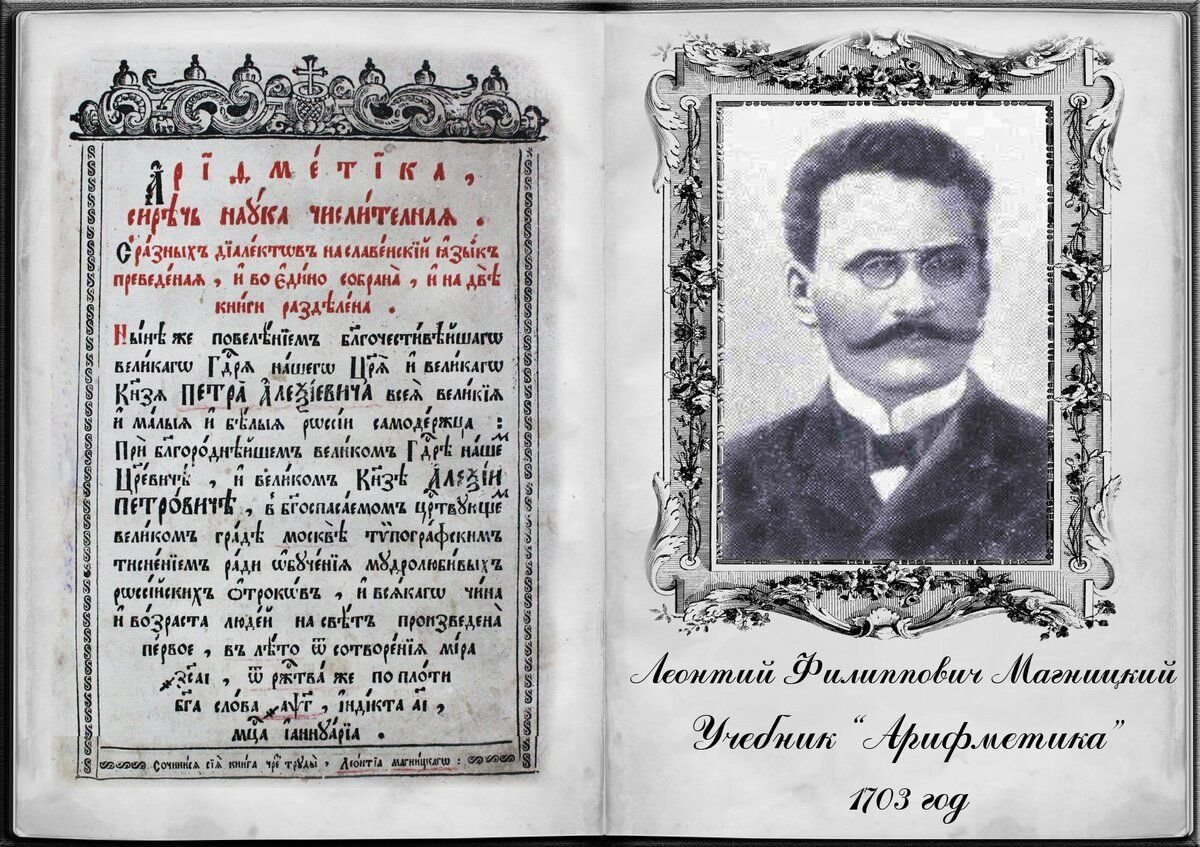 Арїѳме́тїка,
сирѣчь наꙋ́ка числи́телная.
С̾ ра́зныхъ дїале́ктѡвъ на славе́нскїй ꙗ҆зы́къ
преведе́наѧ, и҆ во є҆ди́но собрана̀, и҆ на двѣ̀
кни́ги раздѣле́на.
Ны́нѣ же повелѣ́нїемъ бл҃гочести́вѣйшагѡ
вели́кагѡ Гдⷭ҇рѧ на́шегѡ Цр҃ѧ̀ и҆ вели́кагѡ
Кн҃зѧ ПЕТРА̀ А҆ЛЕѮІ́ЕВИЧА всеѧ̀ вели́кїѧ
и҆ ма́лыѧ и҆ бѣ́лыѧ рѡссі́и самоде́ржца:
Прѝ бл҃горо́днѣйшемъ вели́комъ Гдⷭ҇рѣ̀ на́шеⷨ
Цр҃е́вичѣ, и҆ вели́комъ Кн҃зѣ А҆ЛЕѮІ́И
ПЕТРО́ВИЧѢ, в̾ бг҃оспаса́емомъ црⷭ҇твꙋ́ющеⷨ
вели́комъ гра́дѣ москвѣ̀ тѷпогра́фскимъ
тисне́нїемъ ра́ди ѡ҆бꙋче́нїѧ мꙋдролюби́выхъ
рѡссі́йскихъ ѻ҆́трокѡвъ, и҆ всѧ́кагѡ чи́на
и҆ во́зраста люде́й на свѣ́тъ произведена̀
пе́рвое, въ лѣ́то ѿ сотворе́нїѧ мі́ра
҂зсаі, ѿ ржⷭ҇тва̀ же по пло́ти
бг҃а сло́ва ҂аѱг҃, і҆ндї́кта аі҃,
мцⷭ҇а і҆аннꙋа́рїа.
Сочини́сѧ сїѧ̀ кни́га чреⷥ трꙋды̀, Лео́нтїа магни́цкагѡ:
Леонтий Филиппович Магницкий
Учебник “Арифметика”
1703 год